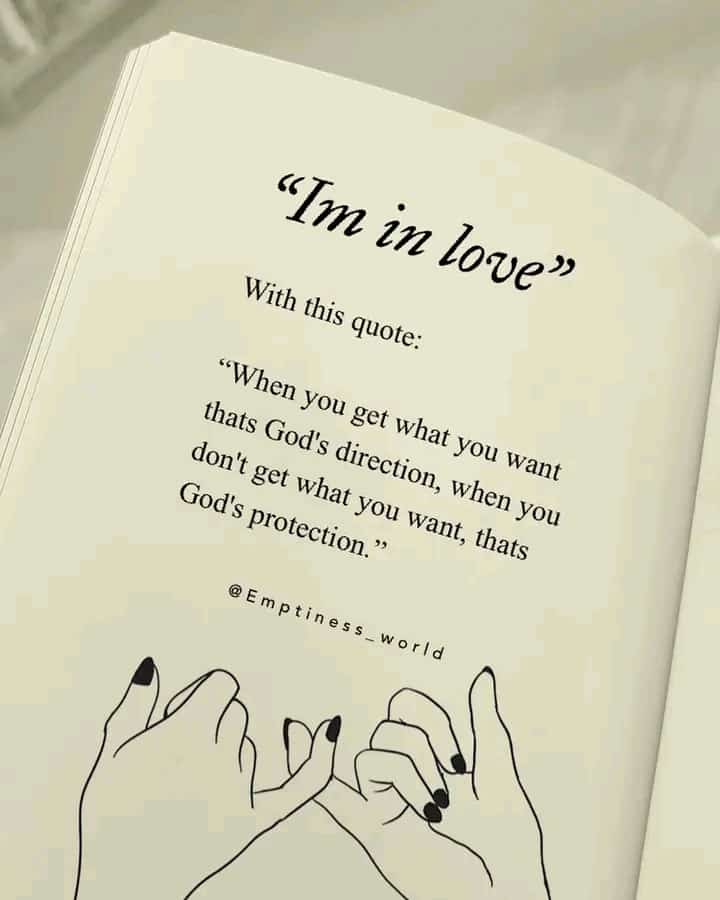 “Im in love”
With this quote:
“When you get what you want
thats God's direction, when you
don't get what you want, thats
God's protection.”
@Emptiness_world